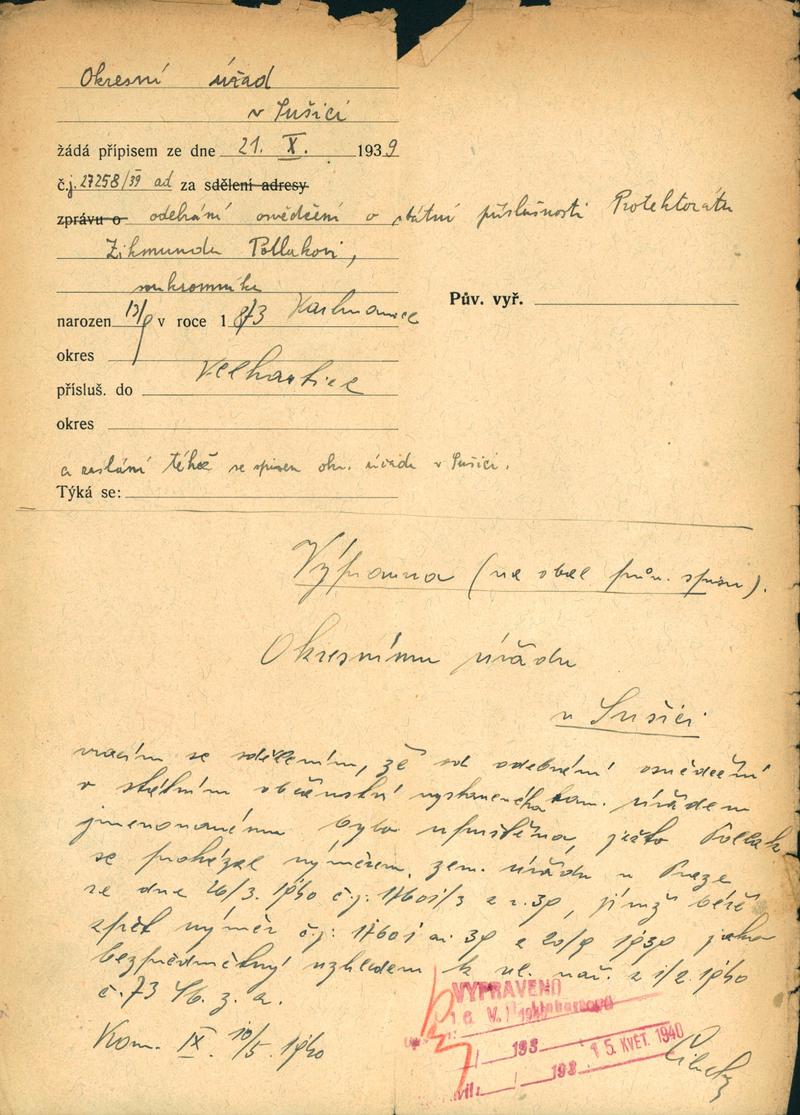 Okresní úřad
v Sušici
žádá přípisem ze dne 21. X. 1939
č.j. 27258/39 ad za sdělení adresy
zprávu o odebrání osvědčení o státní příslušnosti Protektorátu
Zikmundu Pollakovi,
soukromníku
narozen v roce 1873
okres
přísluš. do Velhartice
okres
a zaslání téhož se spisem okr. úřadu v Sušici.
Týká se:
Pův. vyř.
Výprava (na obal pův. spisu).
Okresnímu úřadu
v Sušici
vracím se sdělením, že od odebrání osvědčení
o státním občanství vystaveného tam. úřadem
jmenovanému bylo upuštěno, ježto Pollak
se prokázal výměrem zem. úřadu v Praze
ze dne 26/3. 1940 č.j. z r. 39, jímž béře
zpět výměr č.j. ai. 39 z 20/9 1939 jako
bezpředmětný vzhledem k vl. nař. z 1/2. 1940
č. 73 Sb. z. a n.
Kom. IX. 10/5. 1940
VYPRAVENO
193
15. KVĚT. 1940
193